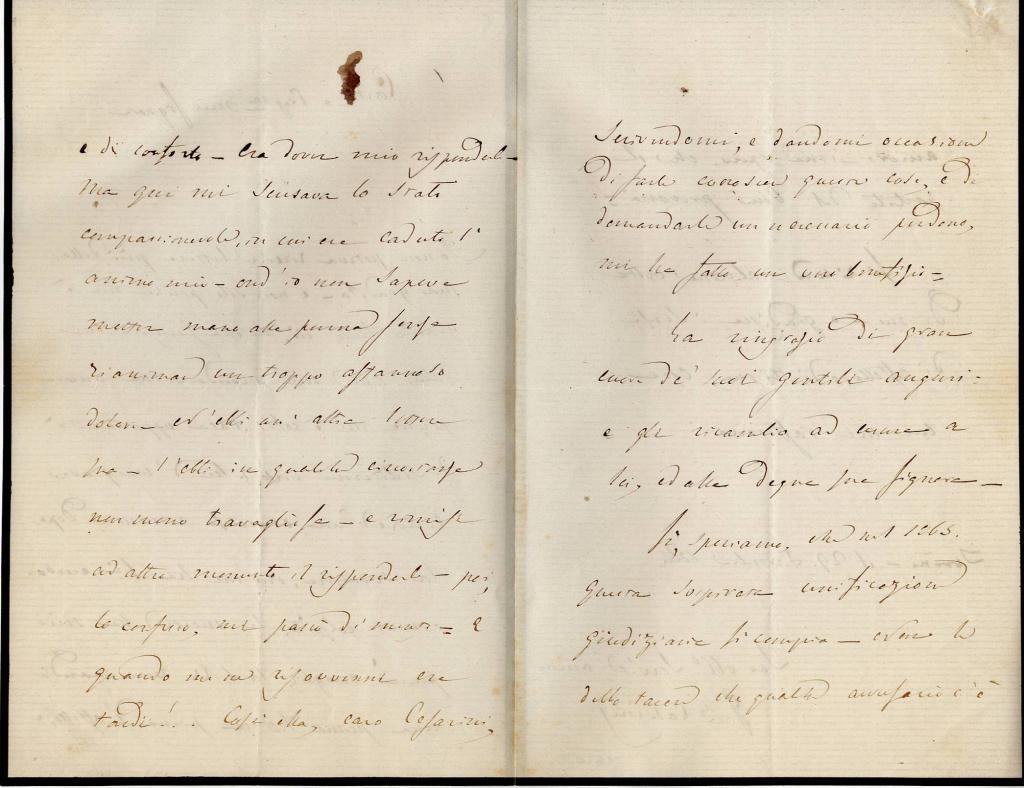 e di conforto – Era dover mio risponderle –
Ma qui mi scusava lo stato
compassionevole, in cui era caduto l'
animo mio – ond'io non sapeva
metter mano alla penna senza
rianimar un troppo affannoso
dolore – ed ebbi un' altra lettera
sua – l'ebbi in qualche circostanza
non meno travagliosa – e rimisi
ad altro momento il risponderle – poi,
lo confesso, mi passò di mente – e
quando me ne risovvenni era
tardi! . . Così ella, caro Cesarini,
scrivendomi, e dandomi occasione
di farle conoscer queste cose, e di
domandarle un necessario perdono,
mi ha fatto un vero benefizio –
La ringrazio di gran
cuore de' suoi gentili auguri –
e gli ricambio ad
lei, ed alla degna sua Signora –
Sì, speriamo, che nel 1865.
questa sospirata unificazione
giudiziaria si compia –
tacer che qualche avversario c'è